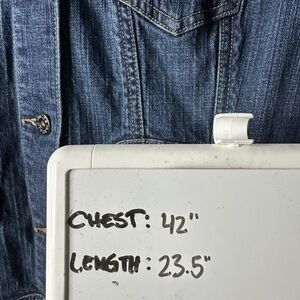 CHEST: 42"
LENGTH: 23.5"